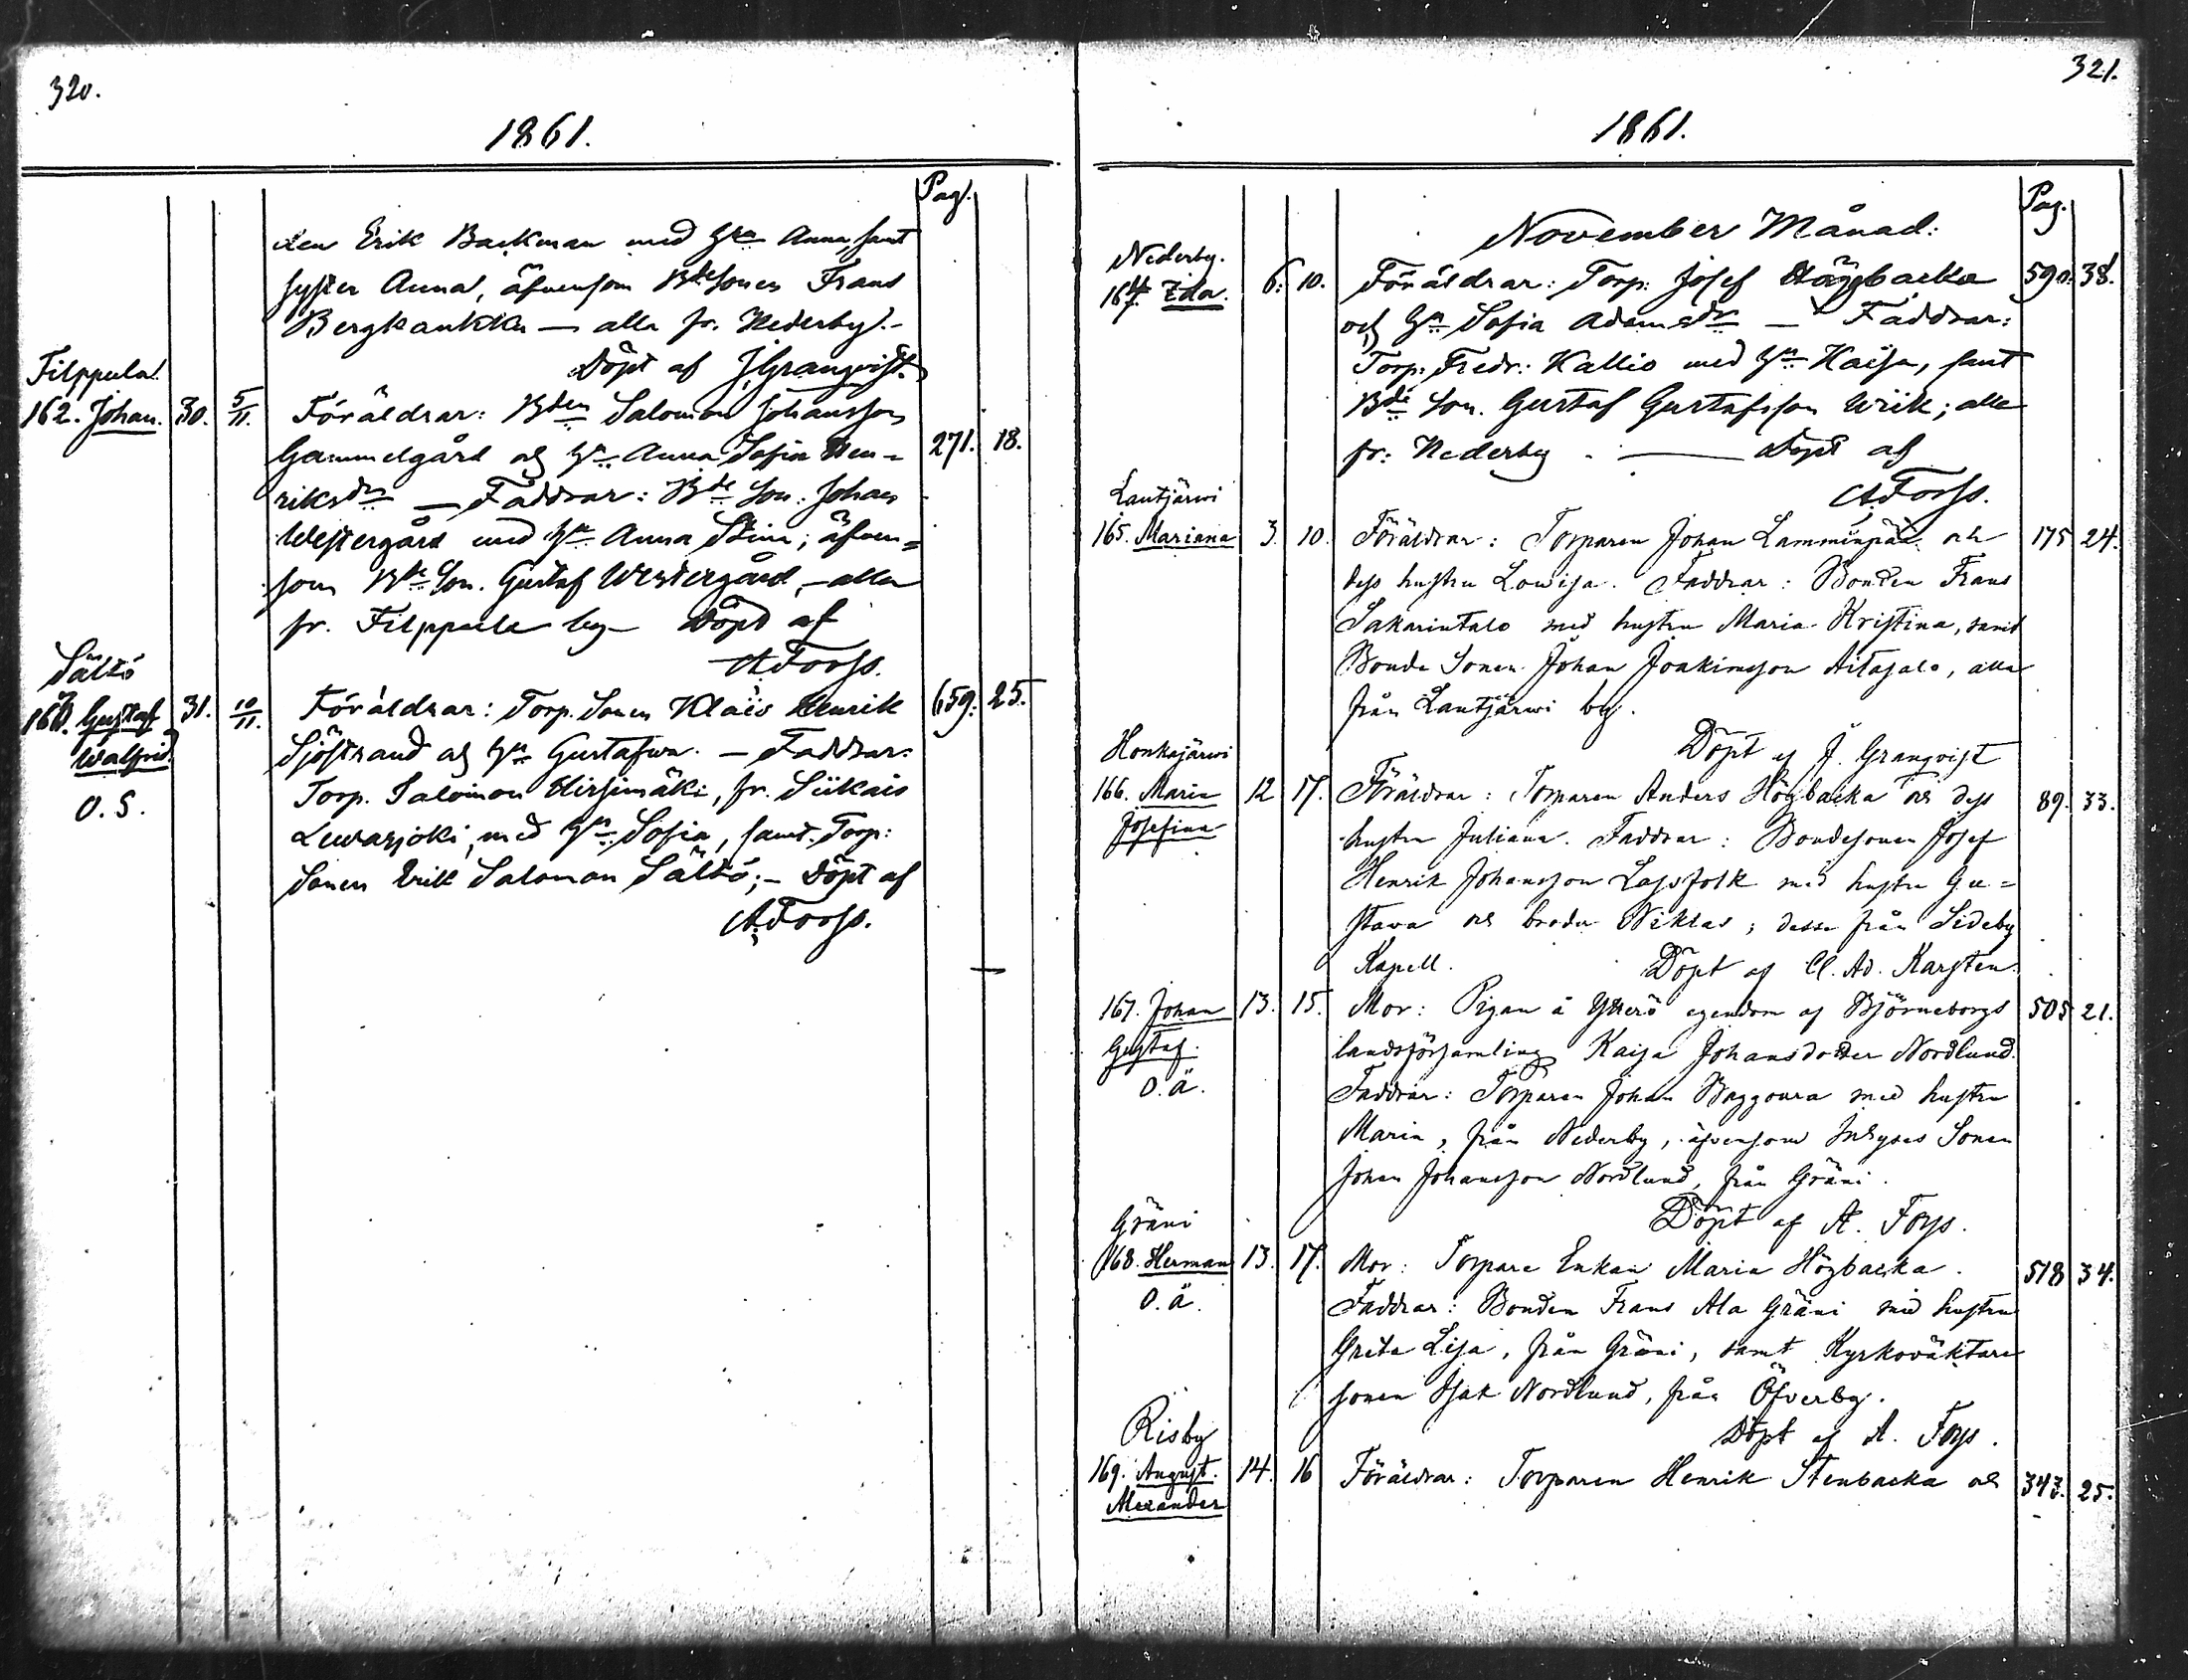 320.
1861.
Pag.
den Erik Backman med Hu Anna, samt
syster Anna, äfvensom Bdesonen Frans
Bergkaukka — alla fr. Nederby.-
Döpt af J. Granqvist.
Filppula
162. Johan. 30. 5/11. Föräldrar: Bden Salomon Johansson
Gammelgård och Hu Anna Sofia Hen= 271. 18.
riksdr — Faddrar: Bde Son. Johan
Westergård med Hu Anna Stina; äfven=
som Bde Son. Gustaf Westergård, - alla
fr. Filppula by - Döpt af
A Forss.
Sältö
163. Gustaf 31. 10/11. Föräldrar: Torp. Sonen Klas Henrik 659. 25.
Walfrid. Sjöstrand och Hu Gustafwa. — Faddrar:
Torp. Salomon Hirsimäki, fr. Siikais
O.S. Leväsjoki, med Hu Sofia, samt Torp:
Sonen Erik Salomon Sältö; - Döpt af
A. Forss.
321.
1861.
Pag.
November Månad:
Nederby.
164. Ida. 6. 10. Föräldrar: Torp: Josef Högbacka 590. 38.
och Hu Sofia Adamsdr — Faddrar:
Torp: Fredr: Kallio med Hu Kaisa, samt
Bde Son. Gustaf Gustafsson Wrik; alla
fr: Nederby. — Döpt af
A Forss.
Lautjärwi
165. Mariana 3. 10. Föräldrar: Torparen Johan Lamminpää och 175 24.
dess hustru Lowisa. Faddrar: Bonden Frans
Sakarintalo med hustru Maria Kristina, samt
Bonde Sonen Johan Joakimsson Aitasalo, alla
från Lautjärwi by.
Döpt af J. Granqvist
Honkajärwi
166. Maria 12 17. Föräldrar: Torparen Anders Högbacka och dess 89. 33.
Josefina hustru Juliana. Faddrar: Bondesonen Josef
Henrik Johansson Lassfolk med hustru Gu=
stava och broder Niklas; desse från Sideby
Kapell. Döpt af Cl. Ad. Karsten.
167. Johan 13. 15. Mor: Pigan å Ytterö egendom af Björneborgs 505 21.
Gustaf. landsförsamling Kaisa Johansdotter Nordlund.
O.ä. Faddrar: Torparen Johan Baggoura med hustru
Maria, från Nederby, äfvensom Inhyses Sonen
Johan Johansson Nordlund, från Gräni.
Döpt af A. Forss.
Gräni
168. Herman 13. 17. Mor: Torpare Enkan Maria Högbacka. 518 34.
O.ä. Faddrar: Bonden Frans Ala Gräni med hustru
Greta Lisa, från Gräni, samt Kyrkoväktare
sonen Isak Nordlund, från Öfverby.
Döpt af A. Forss.
Risby
169. August. 14. 16 Föräldrar: Torparen Henrik Stenbacka och 343. 25.
Alexander